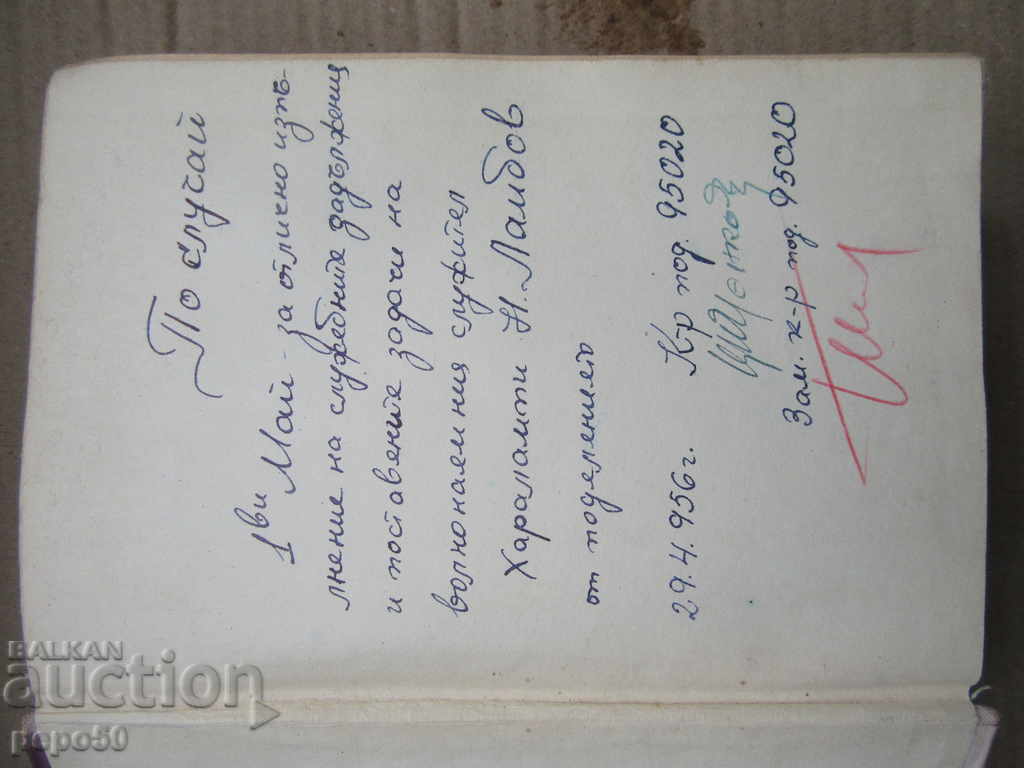 По случай
1ви Май - за отлично изпъ-
лнение на служебните задължения
и поставените задачи на
волнонаемния служител
Хараламти Н. Ламбов
от поделението
29.4.956г. К-р под. 95020
Зам. к-р под. 95020
BALKAN
auction
pepo50